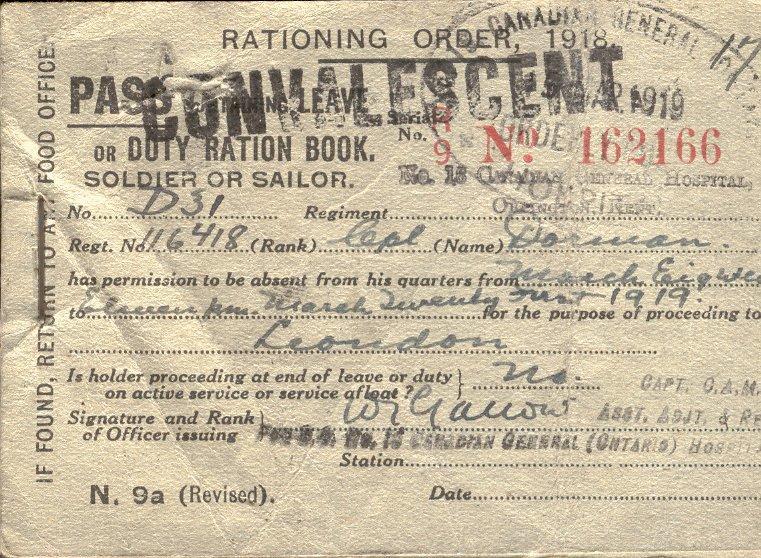 RATIONING ORDER, 1918.
CANADIAN GENERAL
17
PASS CONVALESCENT LEAVE
MAR 1919
Serial
No. No. 162166
OR DUTY RATION BOOK.
SOLDIER OR SAILOR.
No. 16 Canadian General Hospital,
Orpington, Kent.
No. D31 Regiment
Regt. No. 116418 (Rank) Cpl (Name) Dorman.
has permission to be absent from his quarters from March
to Eleven pm. March Twenty first 1919. for the purpose of proceeding to
London
Is holder proceeding at end of leave or duty
on active service or service afloat? } No.
CAPT. C.A.M.
Signature and Rank
of Officer issuing }
ASST. ADJT. & RE
No. 16 CANADIAN GENERAL (ONTARIO) HOSPIT
Station
N. 9a (Revised). Date
IF FOUND, RETURN TO ANY FOOD OFFICE.